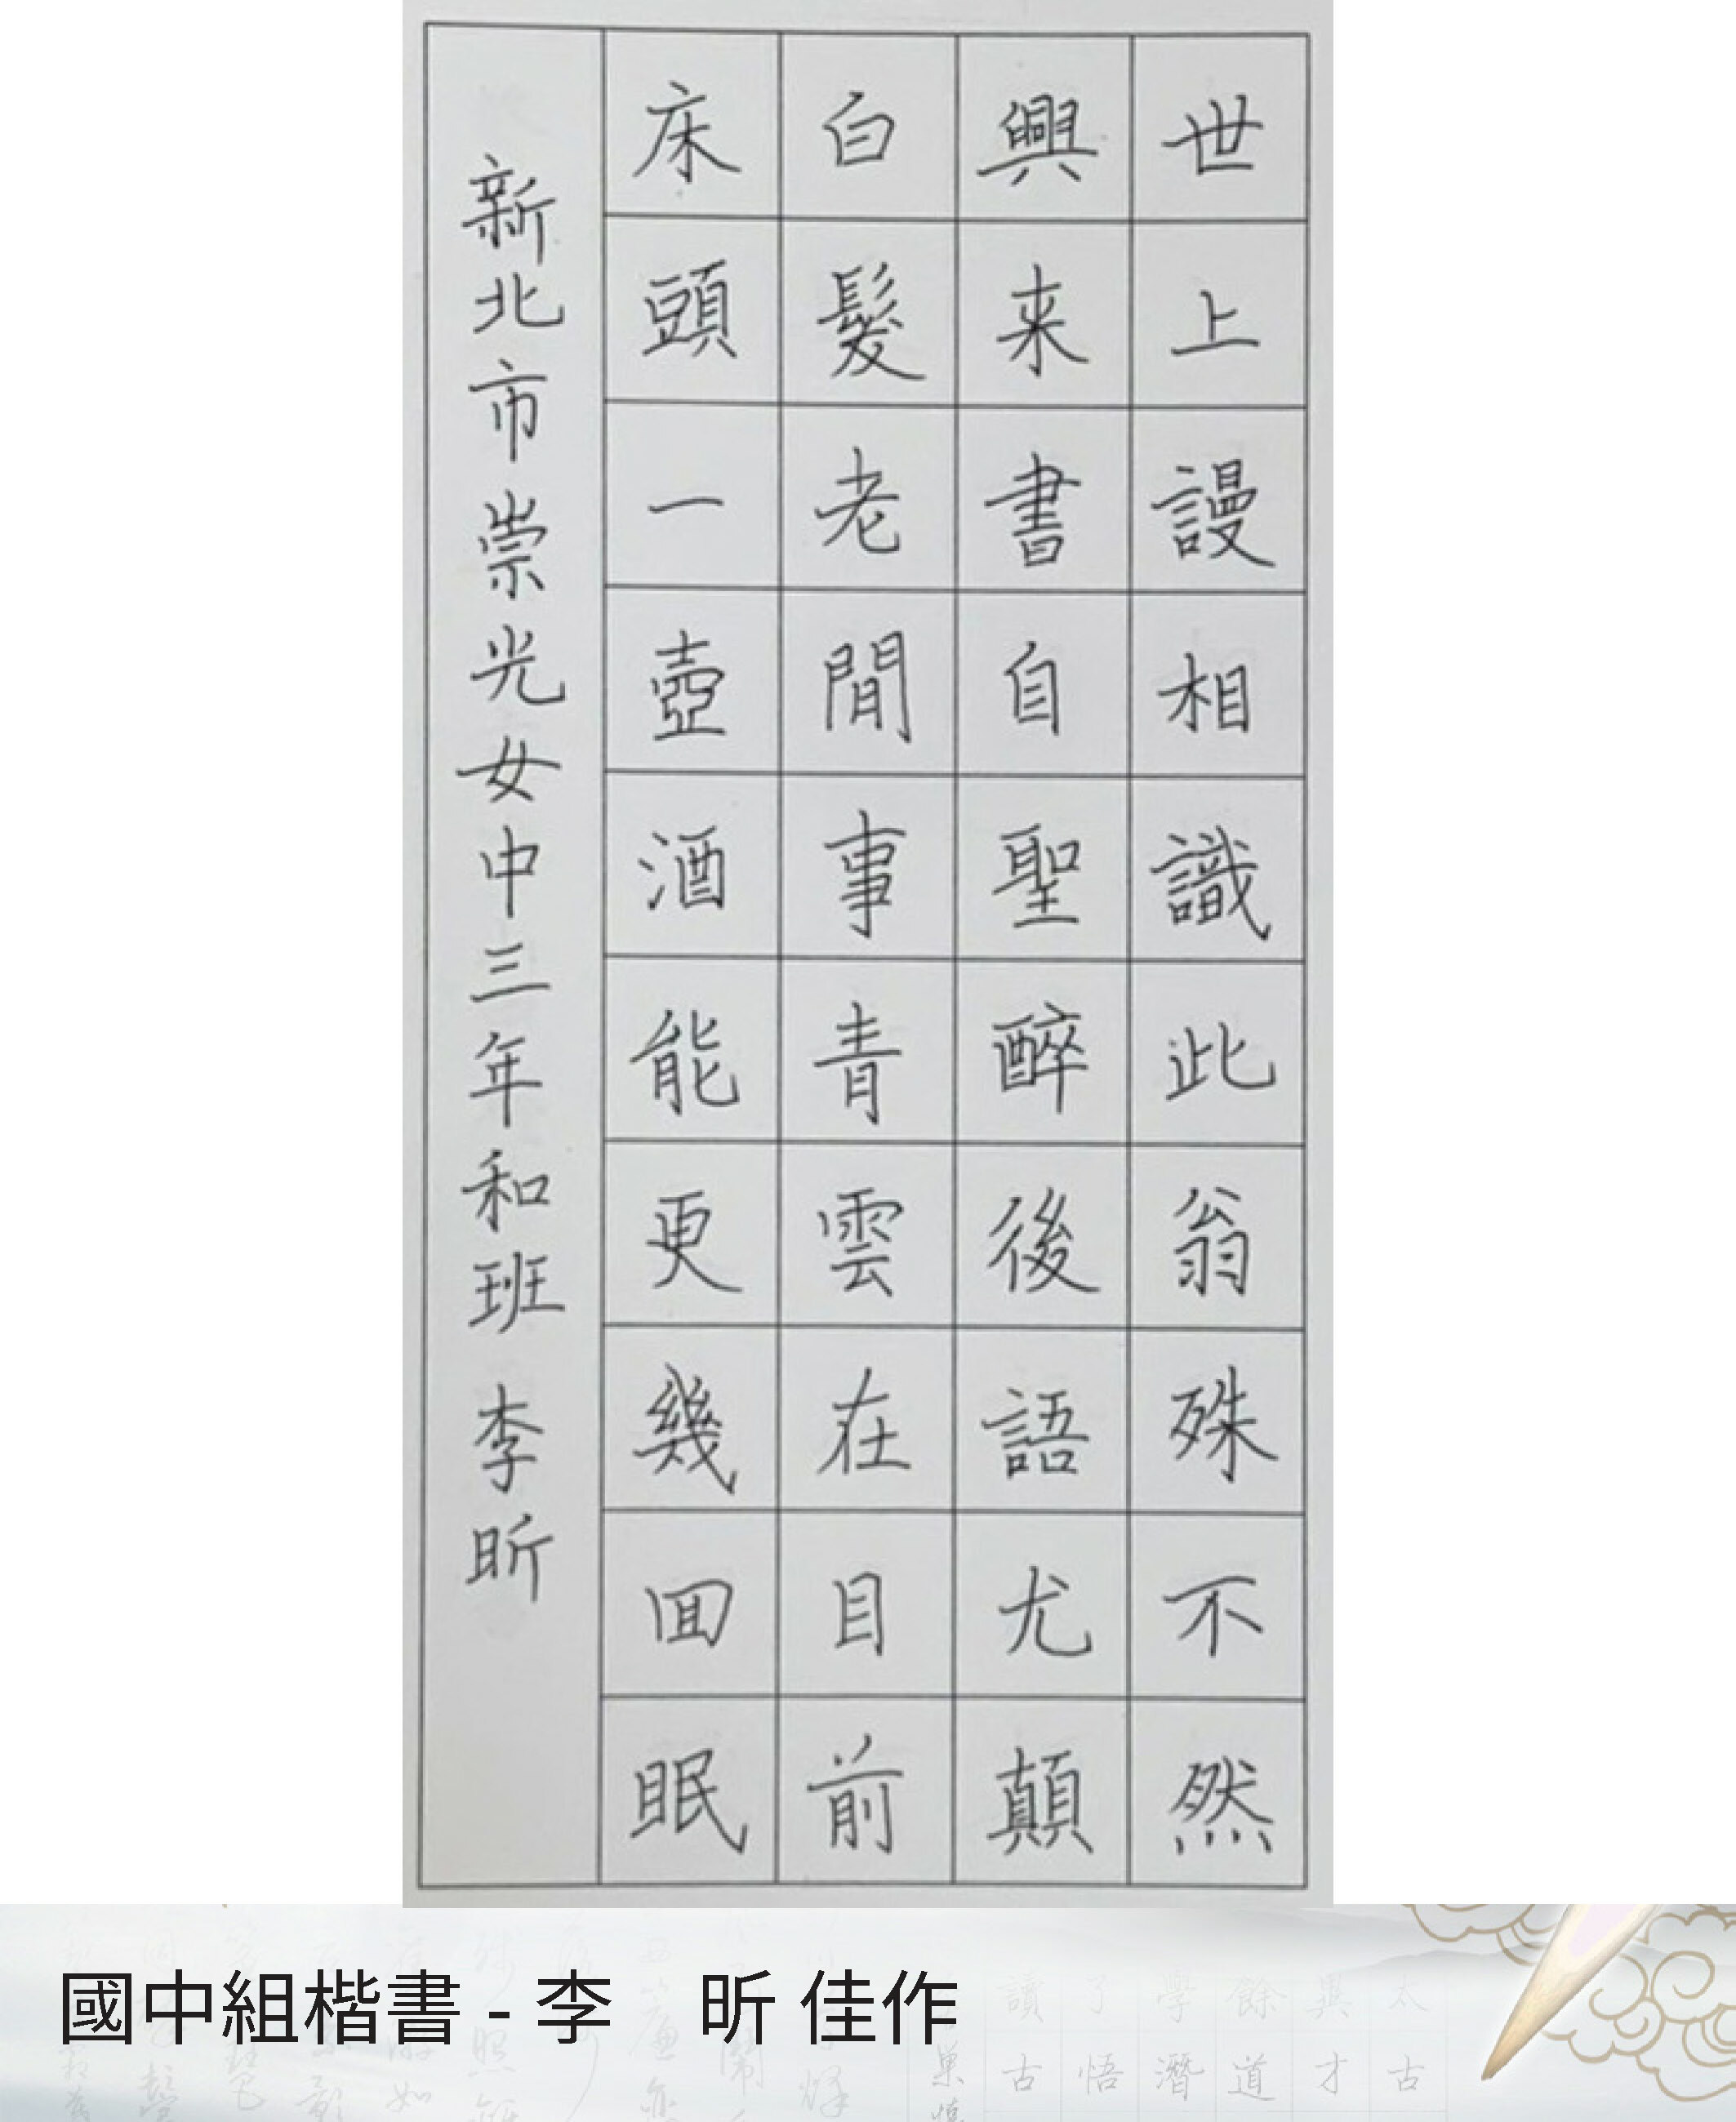 世上謾相識此翁殊不然
興来書自聖醉後語尤顛
白髮老閒事青雲在目前
床頭一壺酒能更幾回眠
新北市崇光女中三年和班 李昕
國中組楷書 - 李　昕 佳作
太與餘學了讀
古才道潛悟古